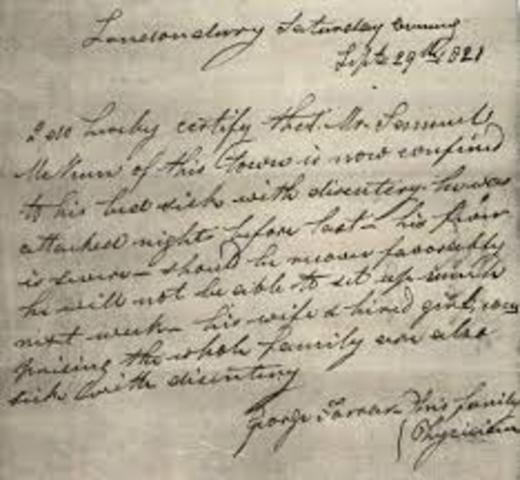 Londonderry Saturday evening
Sept. 29th 1821
I do hereby certify that Mr. Samuel
of this Town is now confined
to his bed sick with disentery he was
attacked night before last - his fever
is severe - should he recover favorably
he will not be able to set up much
next week - his wife & hired girl, com
prising the whole family are also
sick with disentery
George Farrar his family
Physician